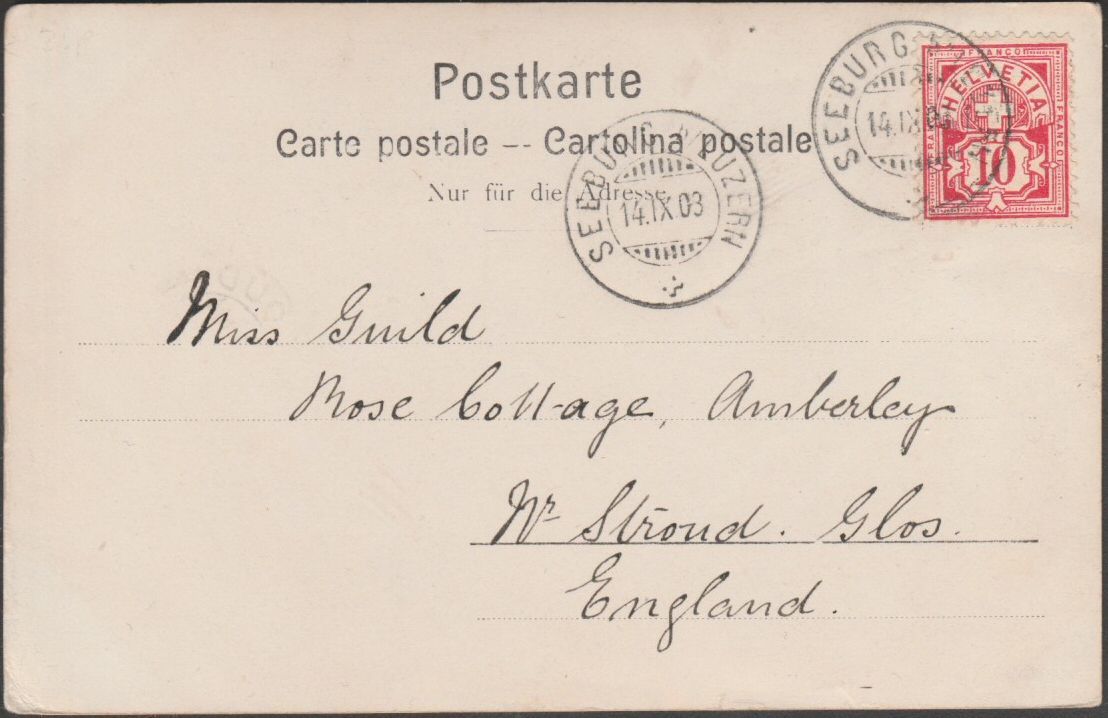 Postkarte
Carte postale -- Cartolina postale
Nur für die Adresse
SEEBURG B/LUZERN
14.IX 03
SEEBURG
14.IX 03
FRANCO
HELVETIA
FRANCO
10
Miss Guild
Rose Cottage, Amberley
Nr Stroud. Glos.
England.